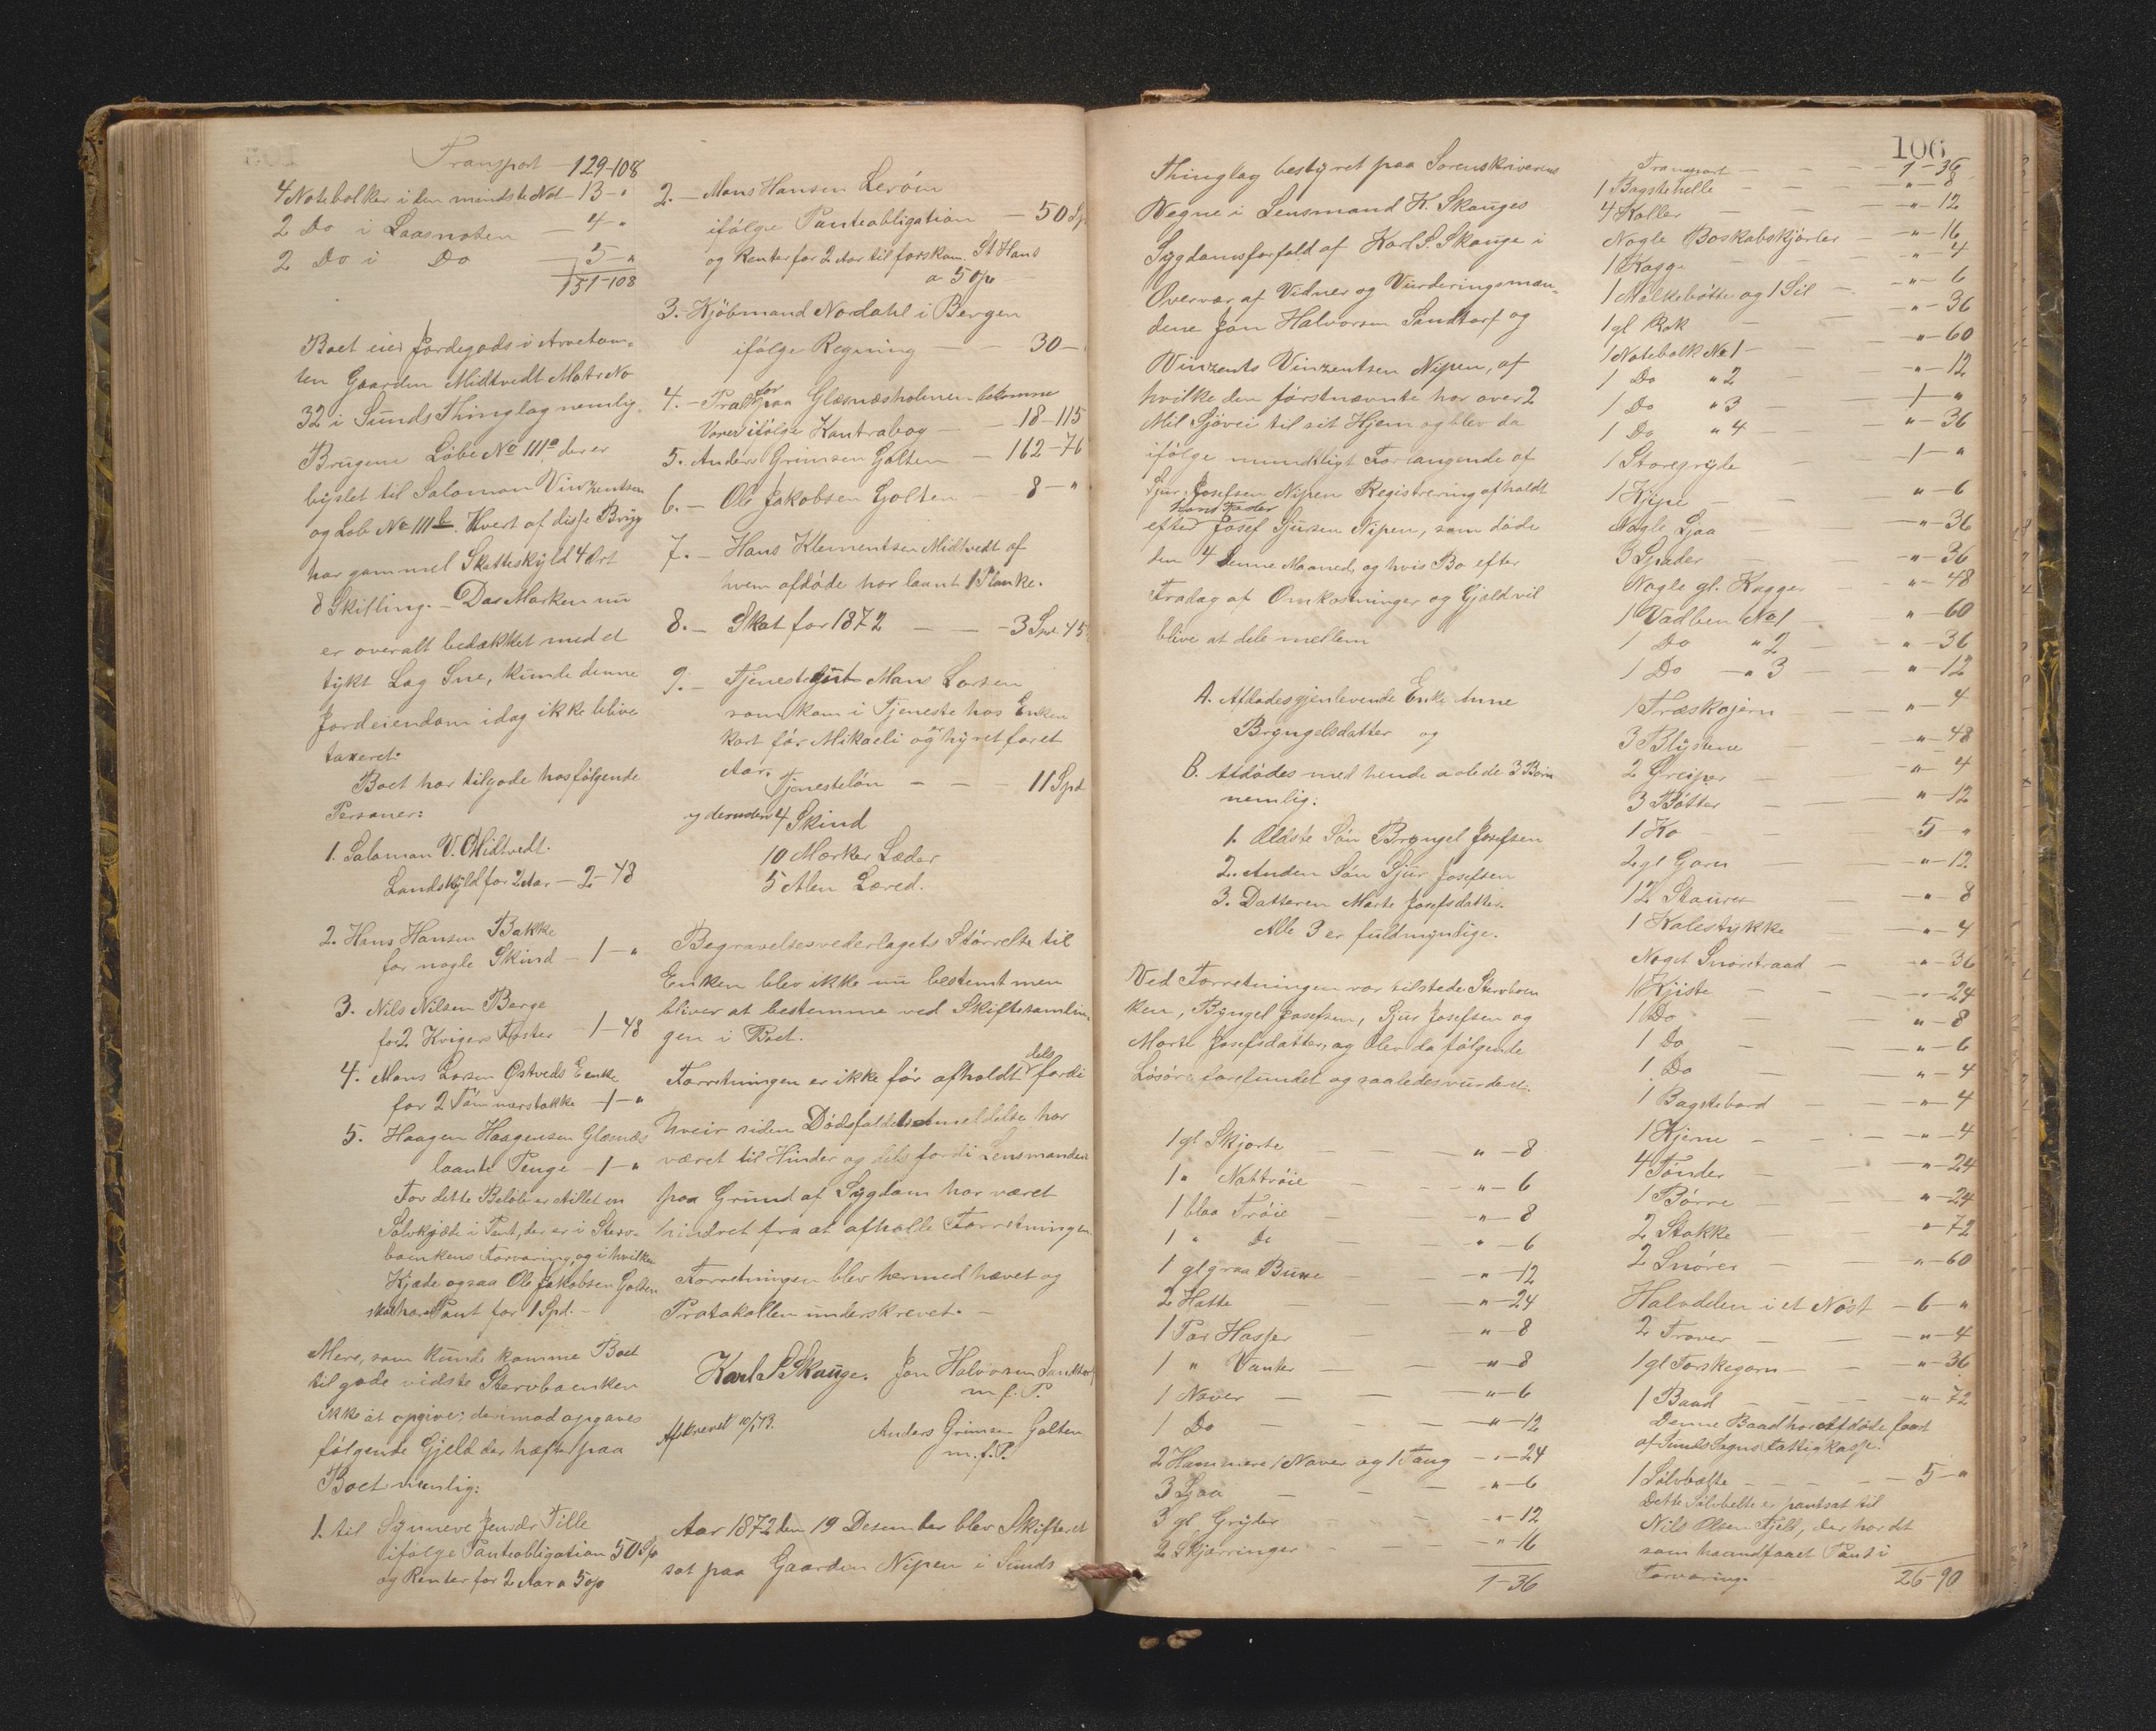 Transport - 129-108
4 Notebolker i den mindste Not - 13 - "
2 Do i Laasnoten - 4 - "
2 Do i Do - 5 - "
151-108
Boet eier Jordegods i Arvetom-
ten Gaarden Midtvedt Matr No
32 i Sunds Thinglag nemlig
Brugene Löbe No IIIa der er
bygslet til Salomon Vinzentsen
og Löb No IIIb. Hvert af disse Brug
har gammel Skatteskyld 4 Ort
8 Skilling. - Da Marken nu
er overalt bedækket med et
tykt Lag Sne, kunde denne
Jordeiendom idag ikke blive
taxeret.
Boet har tilgode hos følgende
Personer:
1. Salamon V. Midtvedt.
Landskyld for 2 Aar - 2-48
2. Hans Hansen Bakke
for nogle Skind - 1 - "
3. Nils Nilsen Berge
for 2 Kvigers Foster - 1-48
4. Mons Larsen Østveds Enke
for 2 Tömmerstokke - 1 - "
5. Haagen Haagensen Glesnæs
laante Penge - 1 - "
For dette Beløb er stillet en
Sølvkjæde i Pant, der er i Sterv-
boenkens Forvaring, og i hvilken
Kjæde ogsaa Ole Jakobsen Golten
skal have Pant for 1 Spd. -
Mere, som kunde komme Boet
til gode vidste Stervboenken
ikke at opgive; derimod opgaves
følgende Gjeld der hæfter paa
Boet nemlig:
1. til Synneve Jensdr Tille
ifølge Panteobligation 50 Sp
og Renter for 2 Aar a 5 o/o
2. - Mons Hansen Leröen
ifølge Panteobligation - 50 Sp
og Renter for 2 Aar til förskom. St Hans
a 5 o/o
3. - Kjöbmand Nordahl i Bergen
ifølge Regning - - 30 -
4. - Pralt paa Glesnæsholmen for bekomne
Varer ifølge Kontrabog - - 18-115
5. Anders Grimsen Golten - 162-76
6. - Ole Jakobsen Golten - 8 - "
7. - Hans Klementsen Midtvedt af
hvem afdöde har laant 1 Planke.
8. - Skat for 1872 - - 3 Spd. 45
9. - Tjenestegut Mons Larsen
som kom i Tjeneste hos Enken
kort för Mikaeli og er hyret for et
Aar.
Tjenestelön - - - 11 Spd
og desuden 4 Skind
10 Marker Læder
5 Alen Lærred.
Begravelsesvederlagets Størrelse til
Enken blev ikke nu bestemt men
bliver at bestemme ved Skiftesamlin-
gen i Boet.
Forretningen er ikke før afholdt dels fordi
Uveir siden Dødsfaldets Anmeldelse har
været til Hinder og dels fordi Lensmanden
paa Grund af Sygdom har været
hindret fra at afholde Forretningen
Forretningen blev hermed hævet og
Protokollen underskrevet. -
Karl S Skauge. Jon Halvorsen Sandtorf
m. f. P.
Afskrevet 10/1 73. Anders Grimsen Golten
m. f. P.
Aar 1872 den 19 Desember blev Skifteret
sat paa Gaarden Nipen i Sunds
106
Thinglag bestyret paa Sorenskriverens
Vegne i Lensmand K. Skauges
Sygdomsforfald af Karl S. Skauge i
Overvær af Vidner og Vurderingsmæn-
dene Jon Halvorsen Sandtorf og
Vinzents Vinzentsen Nipen, af
hvilke den förstnævnte har over 2
Mil Sjövei til sit Hjem og blev da
ifølge mundtligt Forlangende af
Sjur Josefsen Nipen Registrering afholdt
efter hans Fader Josef Sjursen Nipen, som döde
den 4 denne Maaned, og hvis Bo efter
Fradrag af Omkostninger og Gjæld vil
blive at dele mellem
A. Afdödes gjenlevende Enke Anne
Bryngelsdatter og
B. Afdödes med hende avlede 3 Börn
nemlig:
1. Ældste Sön Bryngel Josefsen
2. Anden Sön Sjur Josefsen
3. Datteren Marte Josefsdatter.
Alle 3 er fuldmyndige.
Ved Forretningen var tilstede Stervboen
ken, Bryngel Josefsen, Sjur Josefsen og
Marte Josefsdatter, og blev da følgende
Lösöre forefundet og saaledes vurderet:
1 gl. Skjorte - - - " - 8
1 " Nattröie - - " - 6
1 blaa Tröie - - " - 8
1 " Do - - " - 6
1 gl graa Buxe - - " - 12
2 Hatte - - " - 24
1 Par Hoser - - " - 8
1 " Vanter - - " - 8
1 Naver - - - " - 6
1 Do - - - " - 12
2 Hammere 1 Naver og 1 Tang - " - 24
3 Ljaa - - - " - 6
3 gl. Gryder - - - " - 12
2 Skjærringer - - - " - 16
1-36
Transport - - - 1-36
1 Bagstehelle - - - " - 8
4 Koller - - - " - 12
Nogle Boskabskjörler - " - 16
1 Kagge - - - " - 4
1 Melkebötte og 1 Sil - " - 6
1 gl Rok - - " - 36
1 Notebolk No 1 - - " - 60
1 Do " 2 - " - 12
1 Do " 3 - 1 - "
1 Do " 4 - " - 36
1 Storegryde - - 1 - "
1 Kjipe - - " - 6
Nogle Ljaa - " - 36
3 Spader - - " - 36
Nogle gl. Kagger - " - 48
1 Vadben No 1 - - " - 60
1 Do " 2 - " - 36
1 Do - " 3 - " - 12
1 Træskojern - - " - 4
3 Blystene - - " - 48
2 Greiper - - " - 4
3 Bötter - - " - 12
1 Ko - - 5 "
2 gl Garn - - " - 12
12 Staurer - - " - 8
1 Kalestykke - - " - 4
Noget Snöretraad - - " - 36
1 Kjiste - - - " - 24
1 Do - - " - 8
1 Do - - " - 6
1 Do - - " - 4
1 Bagstebord - - " - 4
1 Kjerne - - - " - 4
4 Tönder - - " - 24
1 Börre - - " - 24
2 Stokke - - " - 72
2 Snörer - - " - 60
Halvdelen i et Nöst - 6 - "
2 Traver - - " - 4
1 gl Torskegarn - - " - 36
1 Baad - - - " - 72
Denne Baad har Afdöde faaet
af Sunds Sogns Fattigkasse.
1 Sölvbelte - - - 5 - "
Dette Sölvbelte er pantsat til
Nils Olsen Fjeld, der har det
som haandfaaet Pant i
Forvaring. 26-90